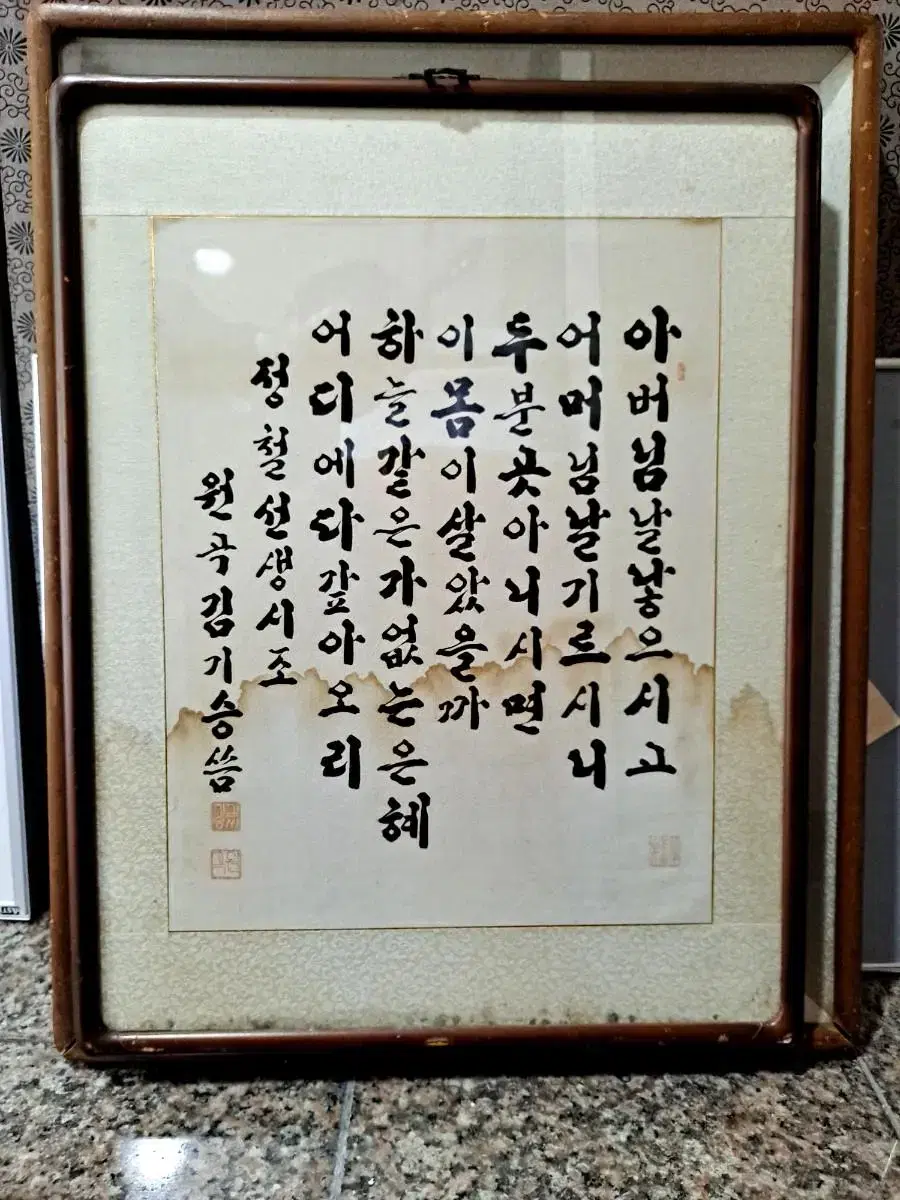 아버님날낳으시고
어머님날기르시니
두분곳아니시면
이몸이살았을까
하늘같은가없는은혜
어디에다갚아오리
정철선생시조
원곡김기승씀